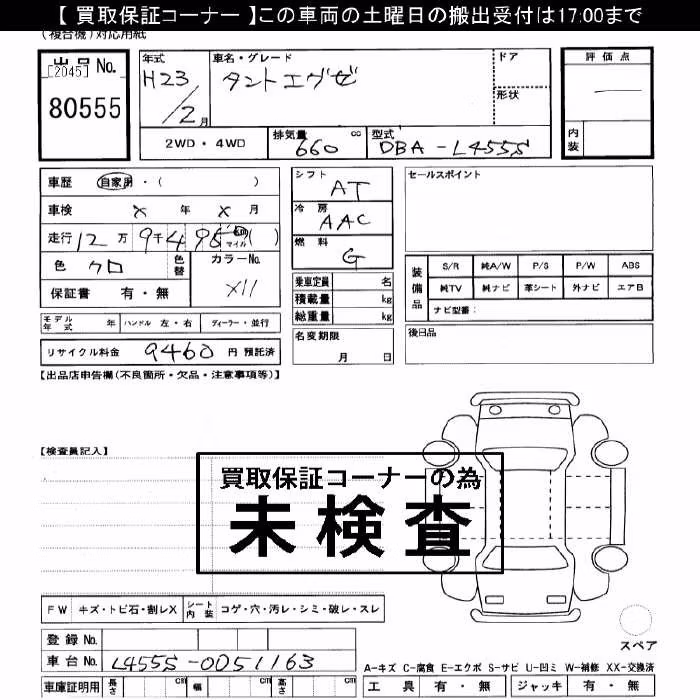 【 買取保証コーナー 】この車両の土曜日の搬出受付は17:00まで
(複合機)対応用紙
出品 No.
[2045]
80555
年式
H23
/2月
車名・グレード
タントエグゼ
ドア
形状
評価点
内装
2WD・4WD
排気量 660 cc
型式 DBA-L455S
車歴 自家用・( )
車検 × 年 × 月
色 クロ
色替
カラーNo.
X11
保証書 有・無
シフト AT
冷房 AAC
燃料 G
乗車定員 名
積載量 kg
総重量 kg
セールスポイント
装備品
S/R 純A/W P/S P/W ABS
純TV 純ナビ 革シート 外ナビ エアB
ナビ型番:
モデル年式 年 ハンドル 左・右 ディーラー・並行
リサイクル料金 9460 円 預託済
名変期限
月 日
後日品
【出品店申告欄(不良箇所・欠品・注意事項等)】
【検査員記入】
買取保証コーナーの為
未検査
FW キズ・トビ石・割レX シート内装 コゲ・穴・汚レ・シミ・破レ・スレ
登録 No.
車台 No. L455S-0051163
車庫証明用 長さ cm 幅 cm 高さ cm
スペア
A-キズ C-腐食 E-エクボ S-サビ U-凹ミ W-補修 XX-交換済
工具 有・無 ジャッキ 有・無